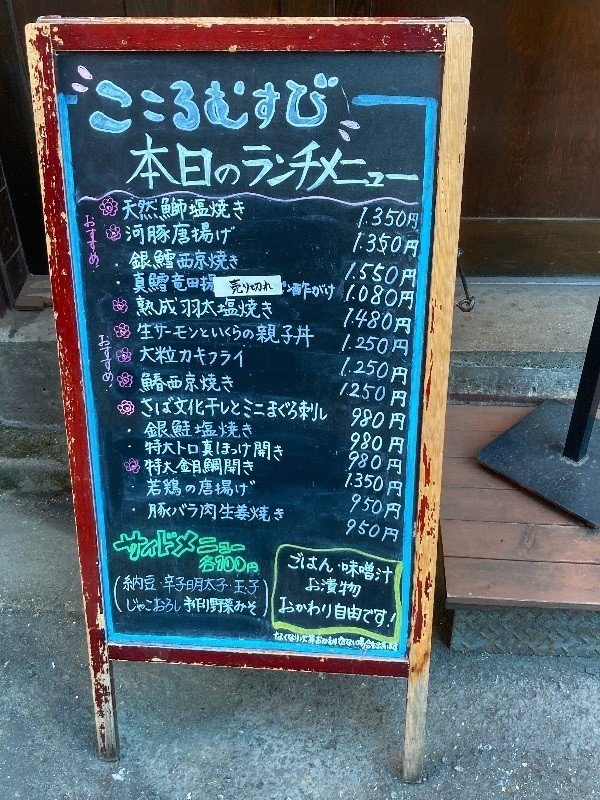 こころむすび
本日のランチメニュー
おすすめ
天然鰤塩焼き 1.350円
河豚唐揚げ 1.350円
・銀鱈西京焼き 1.550円
・真鱈竜田揚 売り切れ がけ 1.080円
熟成羽太塩焼き 1.480円
おすすめ
生サーモンといくらの親子丼 1.250円
大粒カキフライ 1.250円
鰆西京焼き 1250円
さば文化干しとミニまぐろ刺し 980円
・銀鮭塩焼き 980円
・特大トロ真ほっけ開き 980円
特大金目鯛開き 1.350円
・若鶏の唐揚げ 950円
・豚バラ肉生姜焼き 950円
サイドメニュー
各100円
(納豆・辛子明太子・玉子)
(じゃこおろし 手作り野菜みそ)
ごはん・味噌汁
お漬物
おかわり自由です!